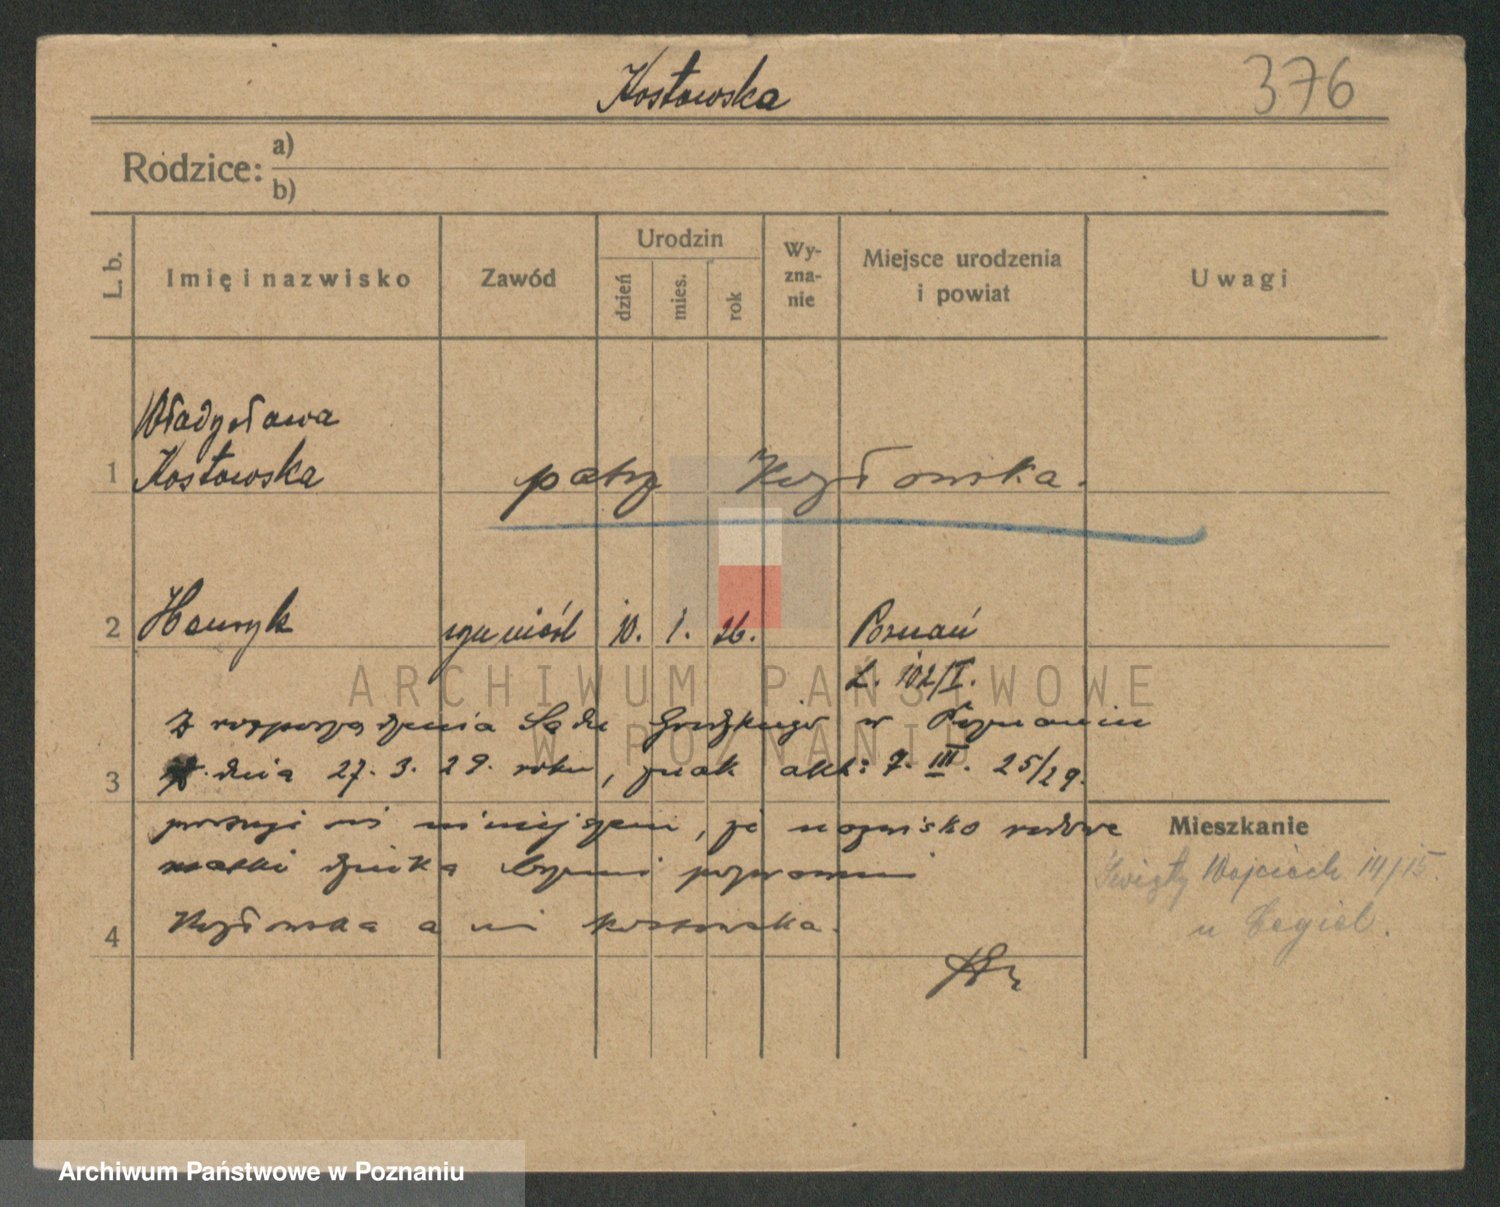 Kostowska
376
Rodzice:
a)
b)
L. b.
Imię i nazwisko
Zawód
Urodzin
dzień
mies.
rok
Wy-
zna-
nie
Miejsce urodzenia
i powiat
Uwagi
Władysława
1 Kostowska patrz Kozłowska.
2 Henryk 10. 1. 26. Poznań
L. 102/I.
Z rozporządzenia Sądu Grodzkiego w Poznaniu
3 dnia 27. 3. 29. roku, znak akt: 7. III. 25/29.
prostuje się niniejszem, że nazwisko rodowe
Mieszkanie
matki dziecka brzmi poprawnie
Święty Wojciech 14/15.
4 Kozłowska a nie Kostowska.
u Cegiel.
ARCHIWUM PAŃSTWOWE
W POZNANIU
Archiwum Państwowe w Poznaniu